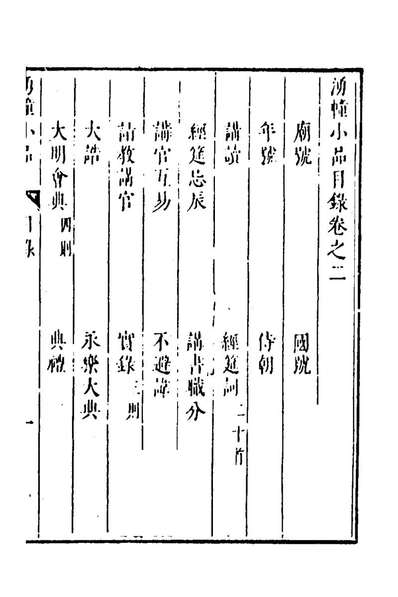 湧幢小品目錄卷之二
廟號 國號
年號 侍朝
講讀 經筵詞二十首
經筵忌辰 講書職分
講官互易 不避諱
請教講官 實錄三則
大誥 永樂大典
大明會典四則 典禮
湧幢小品 目錄 一